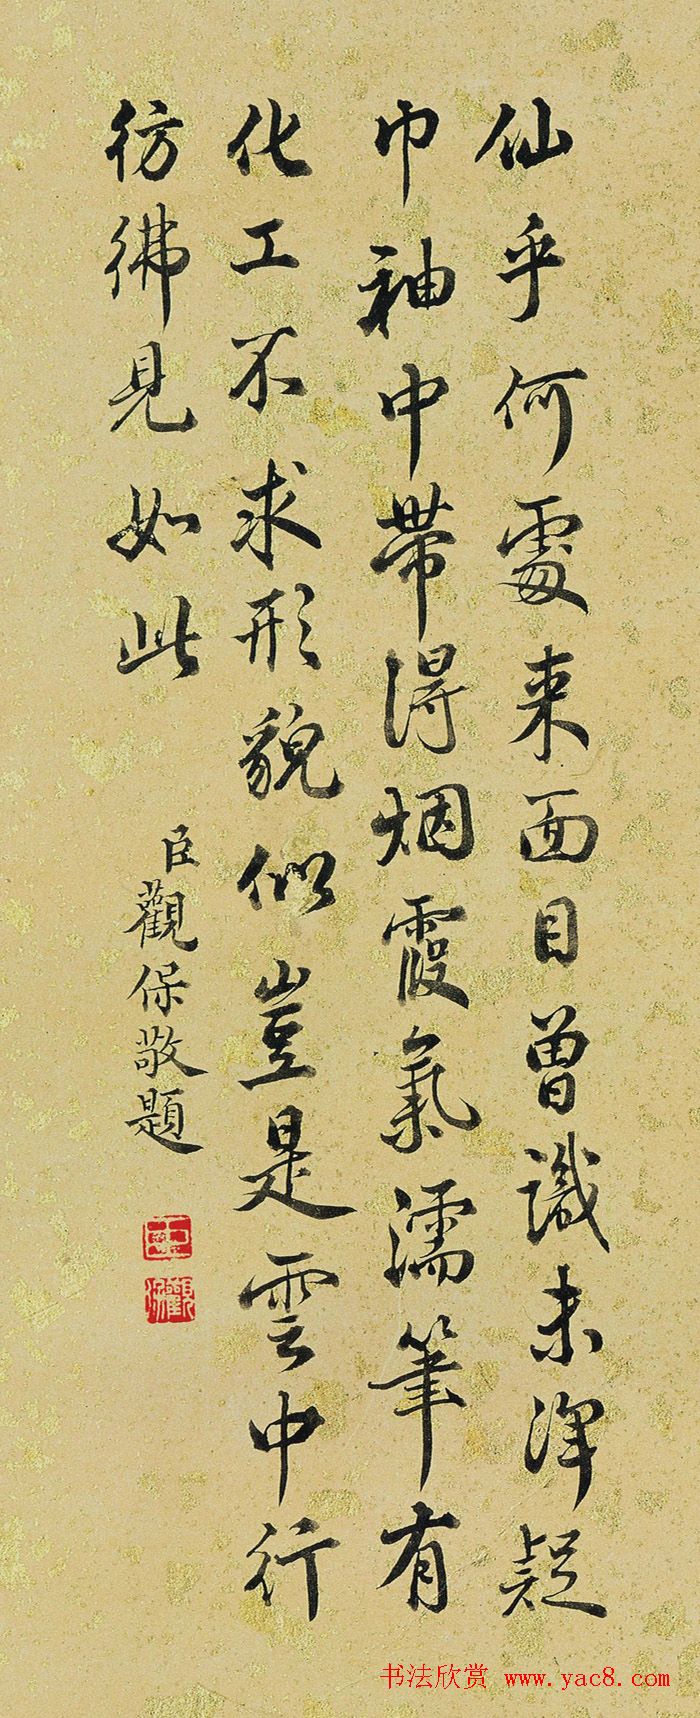 仙乎何處來面目曾識未渾疑
巾袖中帶得烟霞氣濡筆有
化工不求形貌似豈是雲中行
彷彿見如此
臣觀保敬題
书法欣赏 www.yac8.com